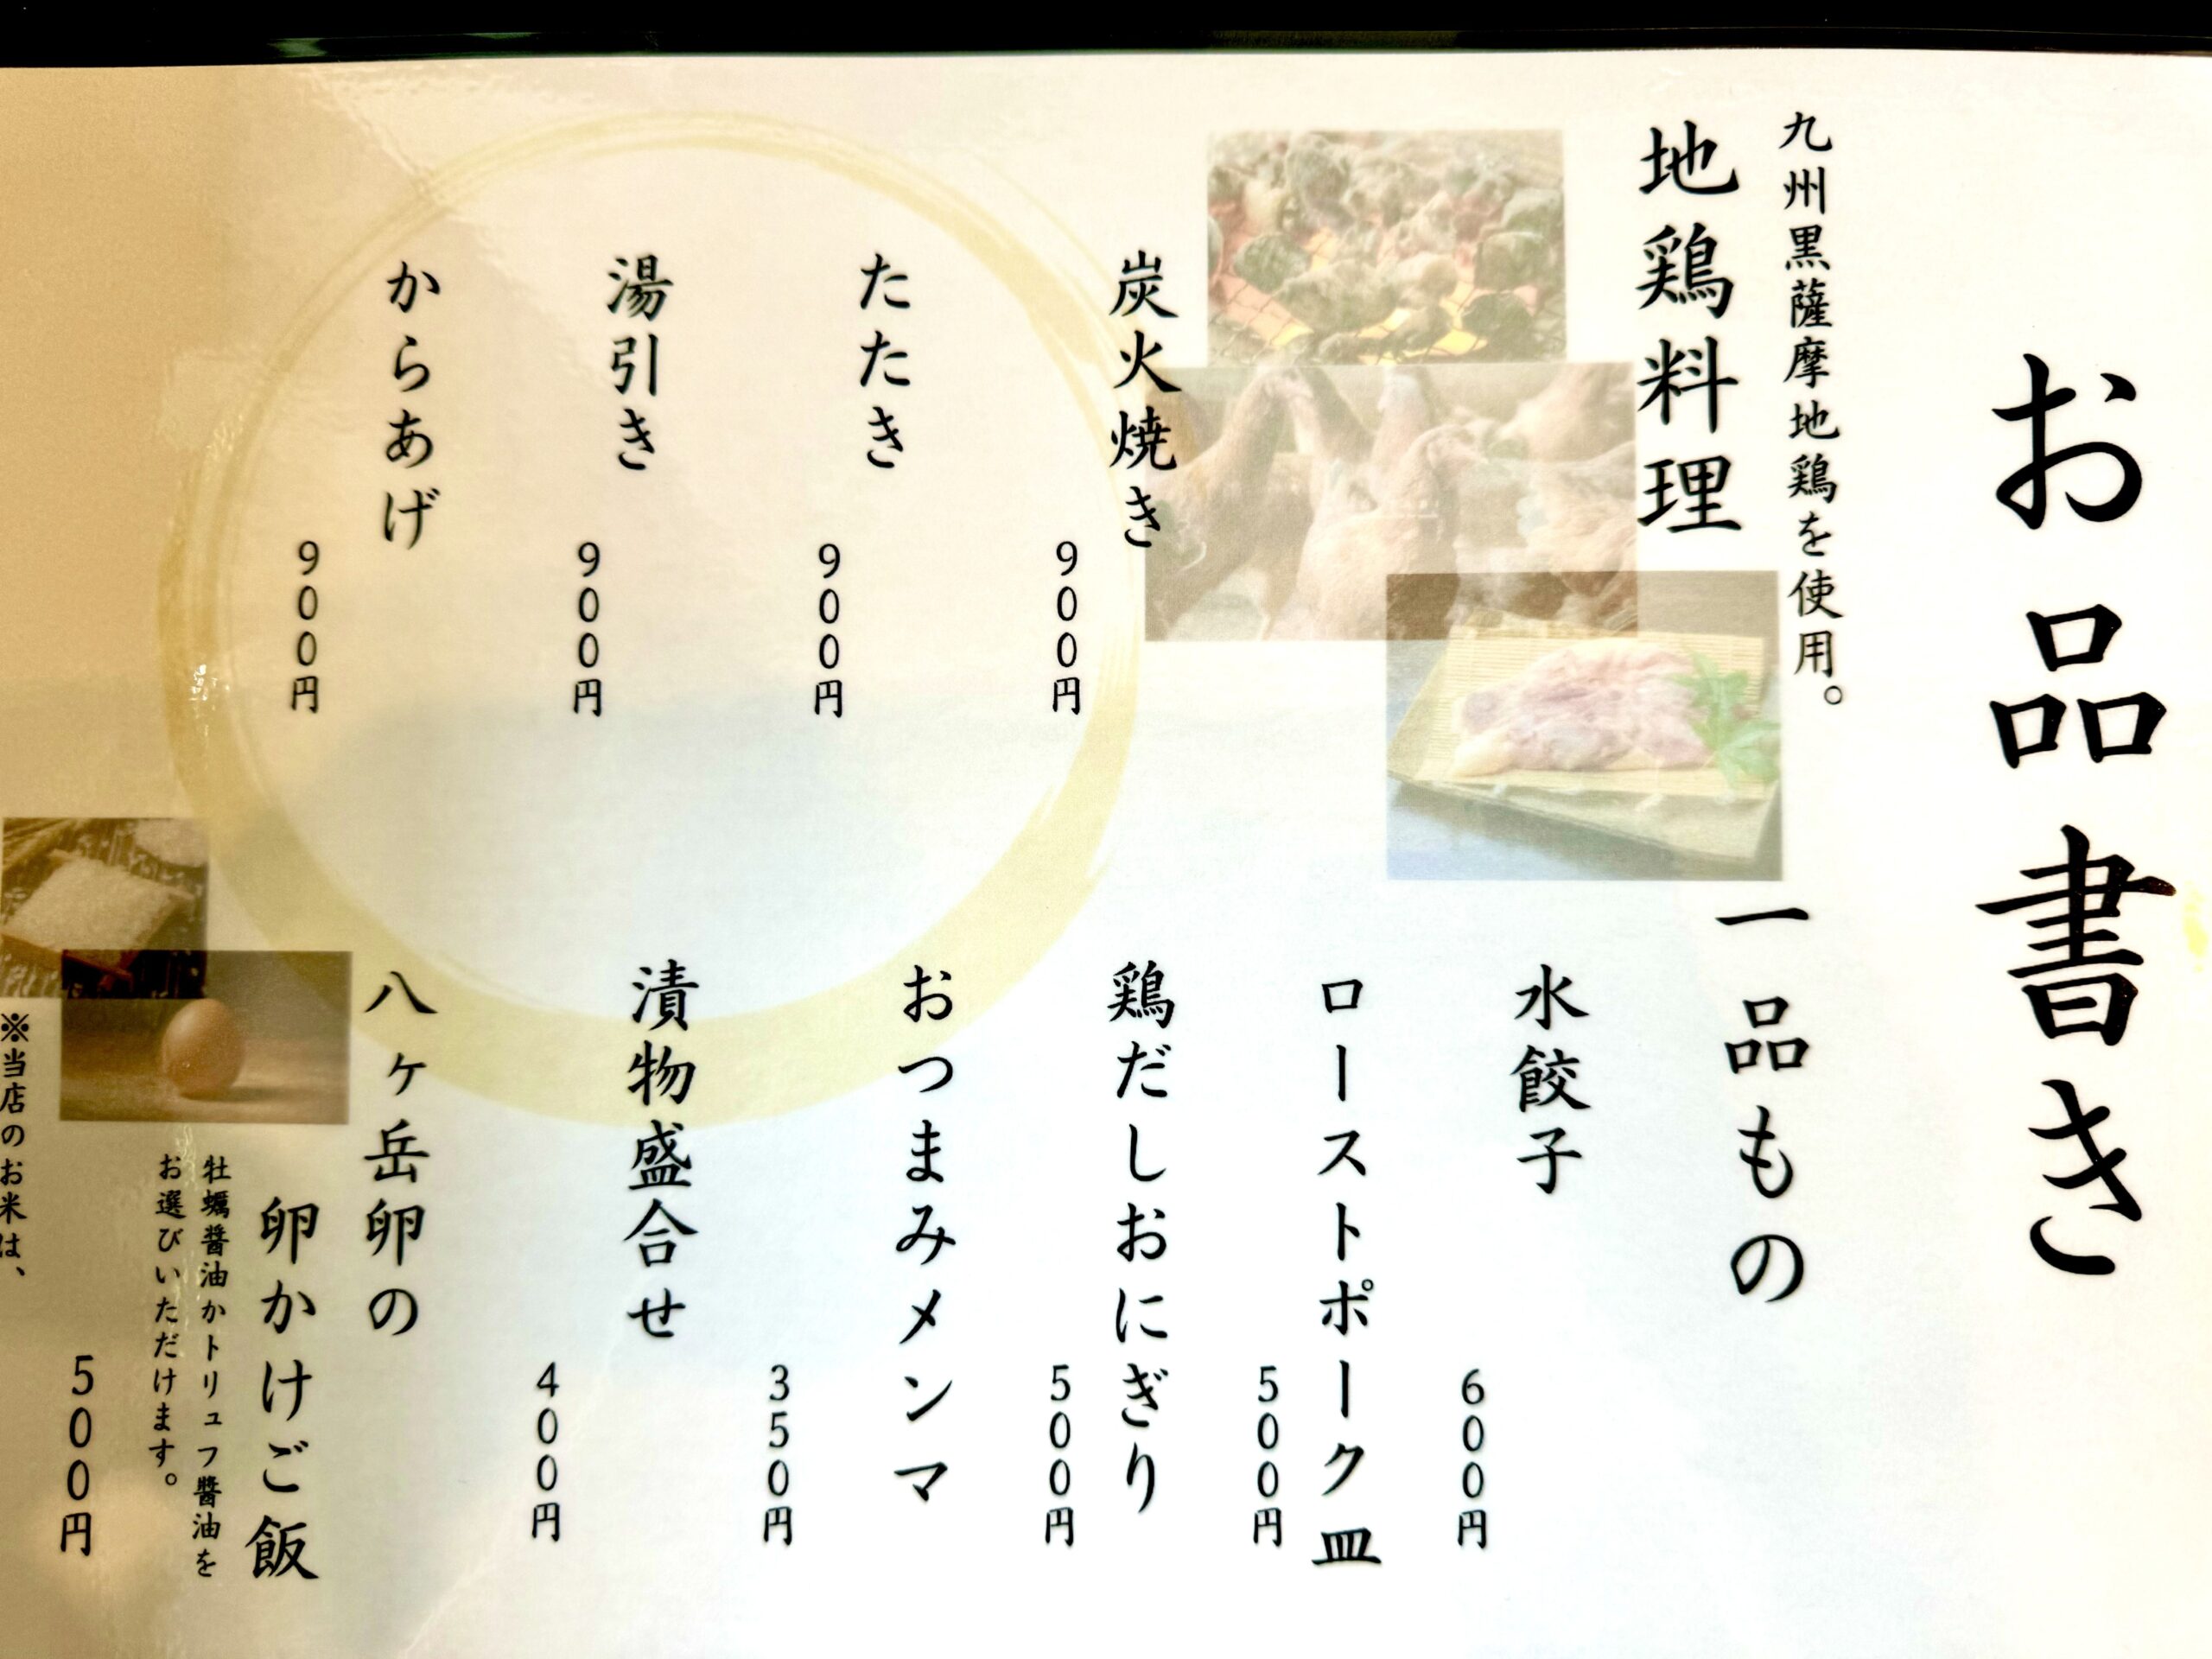 お品書き
九州黒薩摩地鶏を使用。
地鶏料理
炭火焼き
900円
たたき
900円
湯引き
900円
からあげ
900円
一品もの
水餃子
600円
ローストポーク皿
500円
鶏だしおにぎり
500円
おつまみメンマ
350円
漬物盛合せ
400円
八ヶ岳卵の
卵かけご飯
牡蠣醤油かトリュフ醤油を
お選びいただけます。
500円
※当店のお米は、